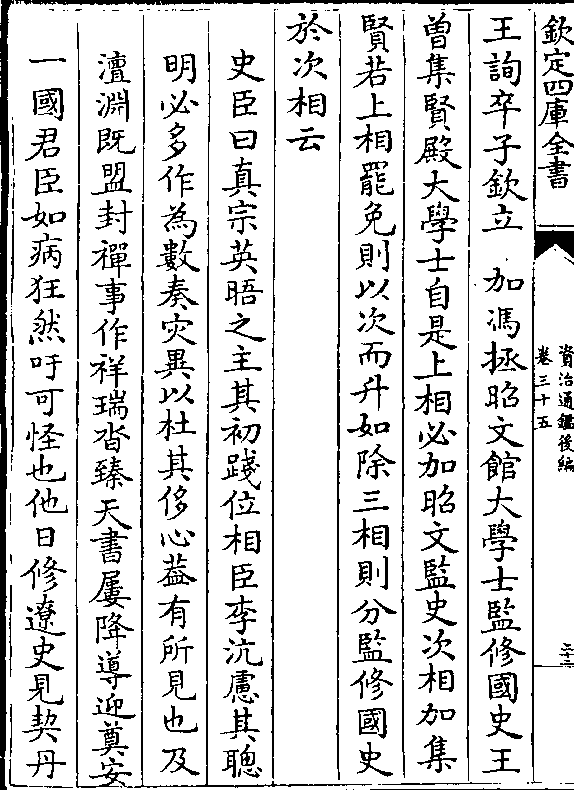 欽定四庫全書
資治通鑑後編
卷三十五
二十三
王詢卒子欽立　加馮拯昭文館大學士監修國史王
曾集賢殿大學士自是上相必加昭文監史次相加集
賢若上相罷免則以次而升如除三相則分監修國史
於次相云
史臣曰真宗英晤之主其初踐位相臣李沆慮其聰
明必多作為數奏灾異以杜其侈心葢有所見也及
澶淵既盟封禪事作祥瑞沓臻天書屢降導迎奠安
一國君臣如病狂然吁可怪也他日修遼史見契丹